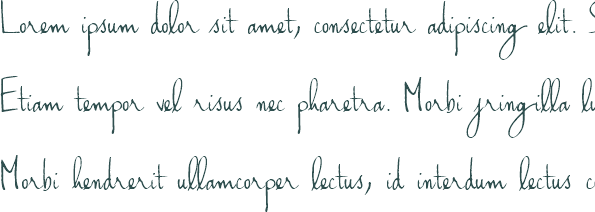 Lorem ipsum dolor sit amet, consectetur adipiscing elit. S
Etiam tempor vel risus nec pharetra. Morbi fringilla lu
Morbi hendrerit ullamcorper lectus, id interdum lectus c